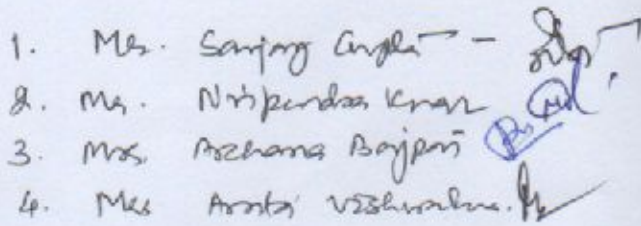 1. Mr. Sanjay Gupta -
2. Mr. Nripendra Kumar
3. Mrs. Archana Bajpai
4. Mrs Arati Vishwakarma.